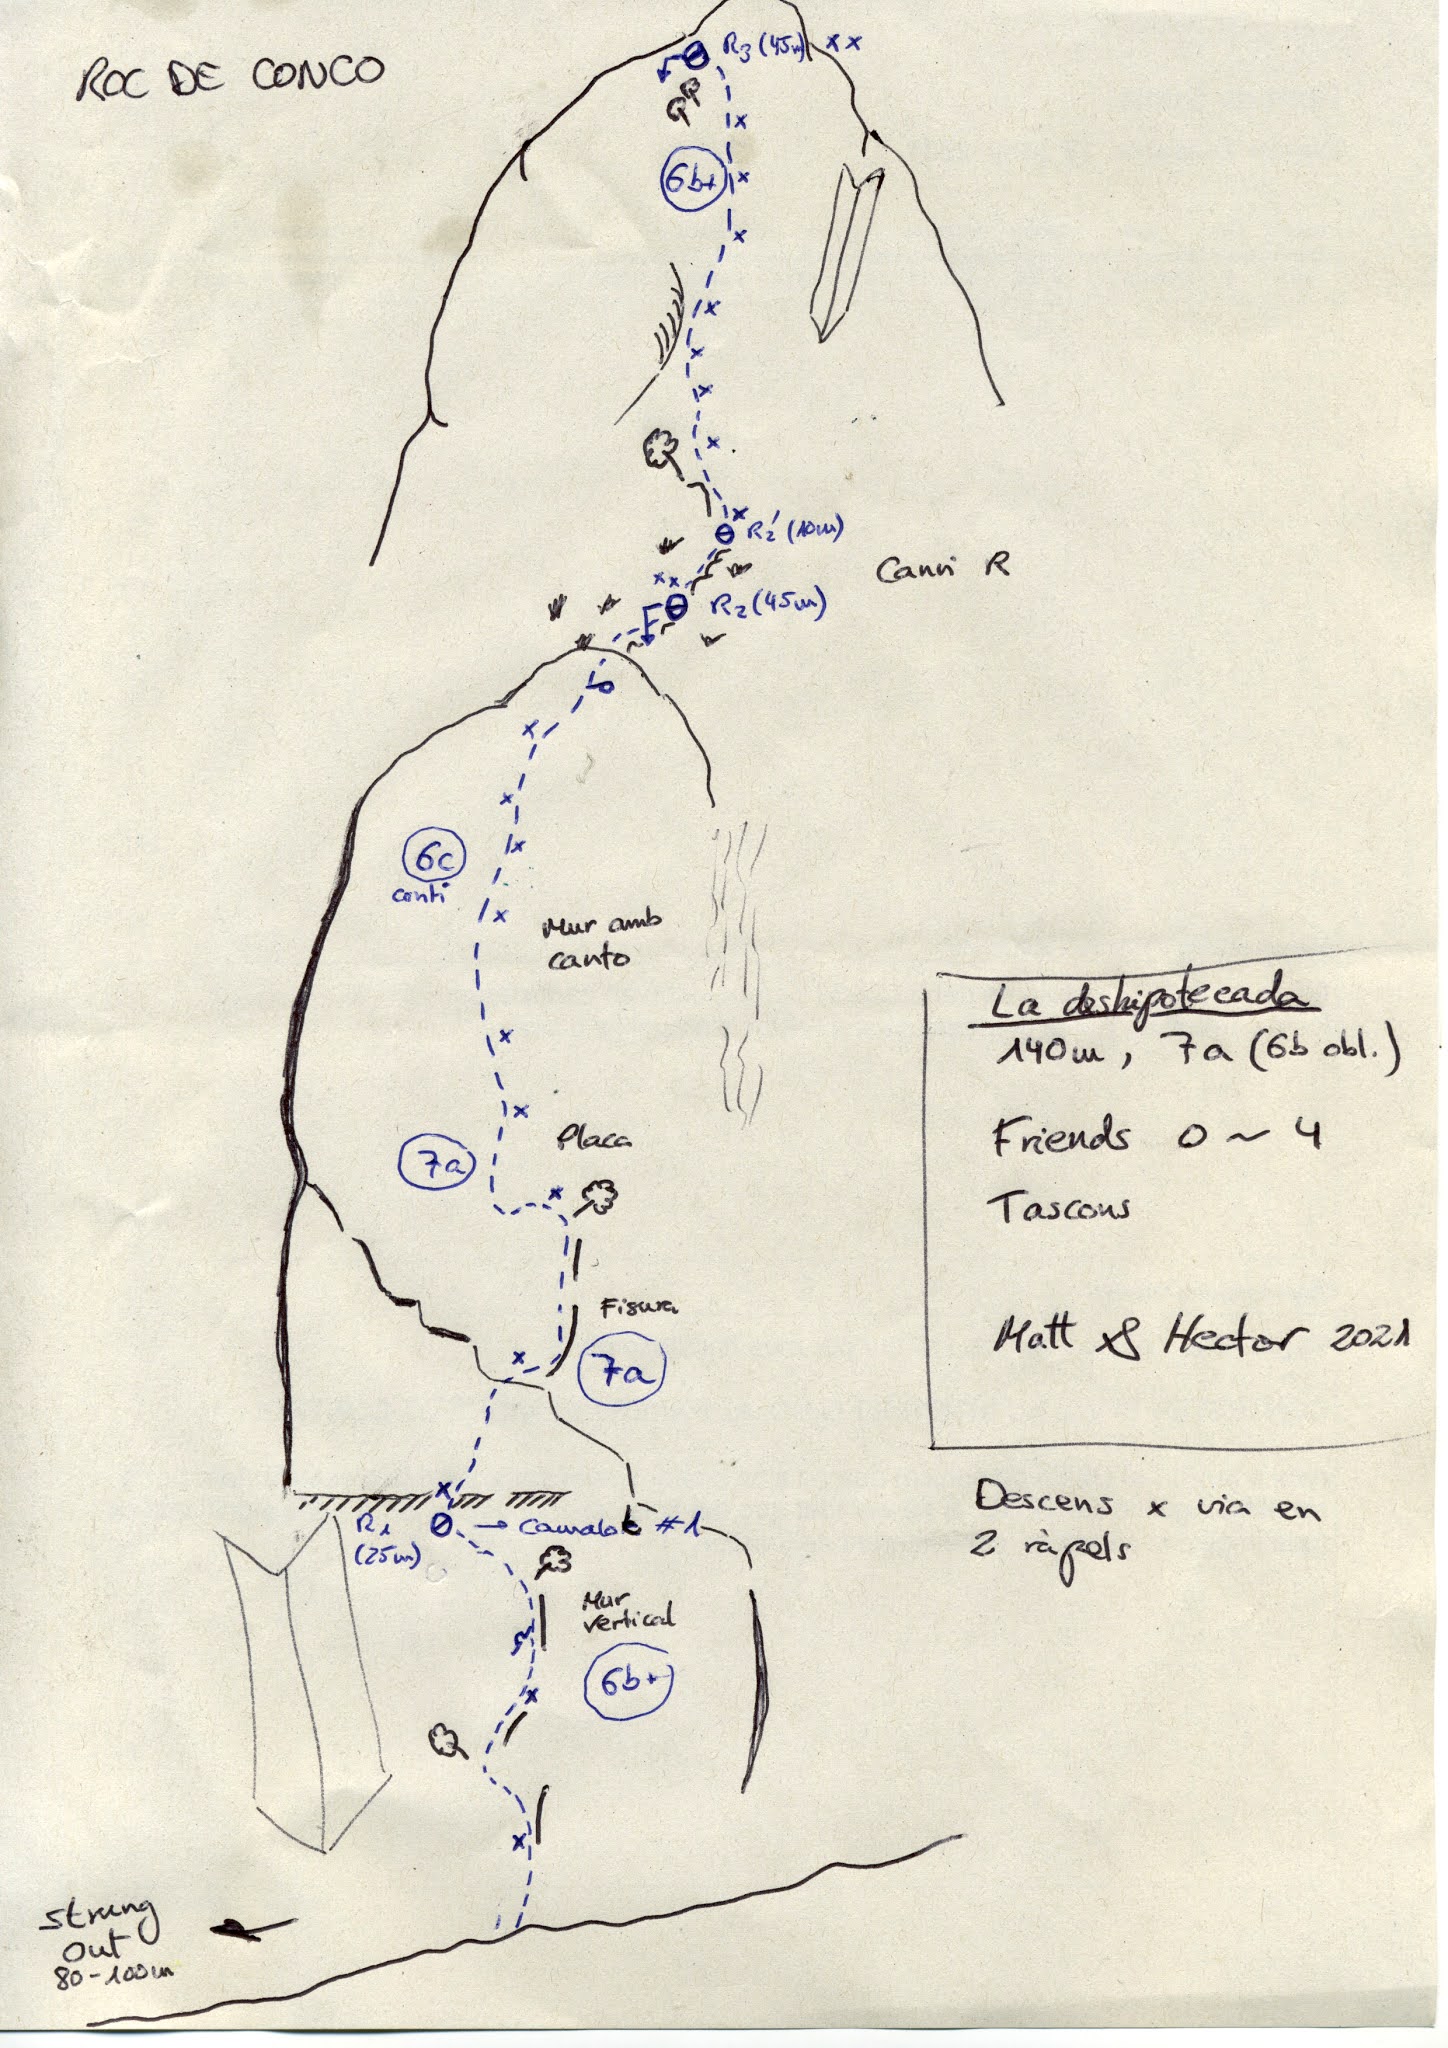 ROC DE CONCO
R3 (45m)
6b+
R2' (10m)
Canvi R
R2 (45m)
6c
conti
Mur amb
canto
Placa
7a
Fisura
7a
R1
(25m)
→ Camalot #1
Mur
vertical
6b+
strung
out
80-100m
La deshipotecada
140m, 7a (6b obl.)
Friends 0 ~ 4
Tascons
Matt & Hector 2021
Descens x via en
2 ràpels